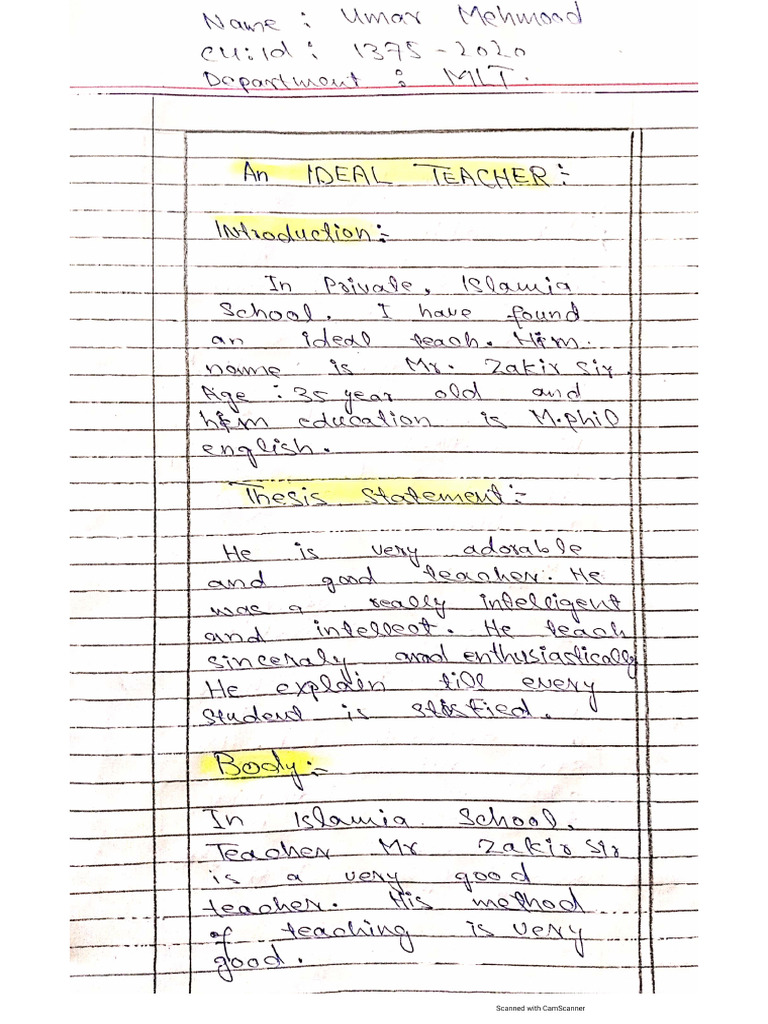 Name : Umar Mehmood
CU:Id : 1375-2020
Department : MLT.
An IDEAL TEACHER:-
Introduction:-
In Private, Islamia
School. I have found
an ideal teach. Him.
name is Mr. Zakir Sir.
Age : 35 year old and
him education is M.phil
english.
Thesis Statement:-
He is very adorable
and good teacher. He
was a really intelligent
and intellect. He teach
sinceraly and enthusiastically
He explain till every
student is stisfied.
Body:-
In Islamia School,
Teacher Mr Zakir Sir
is a very good
teacher. His method
of teaching is very
good.
Scanned with CamScanner